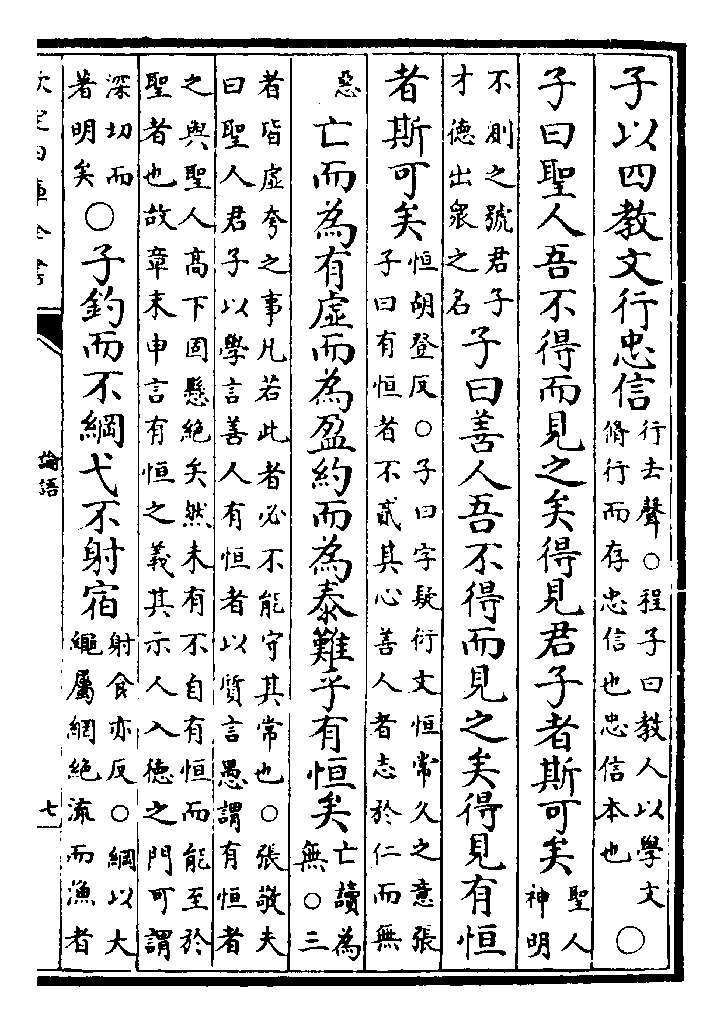 子以四教文行忠信行去聲○程子曰教人以學文脩行而存忠信也忠信本也○
子曰聖人吾不得而見之矣得見君子者斯可矣聖人神明
不測之號君子才德出衆之名子曰善人吾不得而見之矣得見有恒
者斯可矣恒胡登反○子曰字疑衍文恒常久之意張子曰有恒者不貳其心善人者志於仁而無
惡亡而為有虛而為盈約而為泰難乎有恒矣亡讀為無○三
者皆虛夸之事凡若此者必不能守其常也○張敬夫曰聖人君子以學言善人有恒者以質言愚謂有恒者
之與聖人高下固懸絶矣然未有不自有恒而能至於聖者也故章末申言有恒之義其示人入德之門可謂
深切而著明矣○子釣而不綱弋不射宿射食亦反○綱以大繩屬網絶流而漁者
欽定四庫全書
論語
七